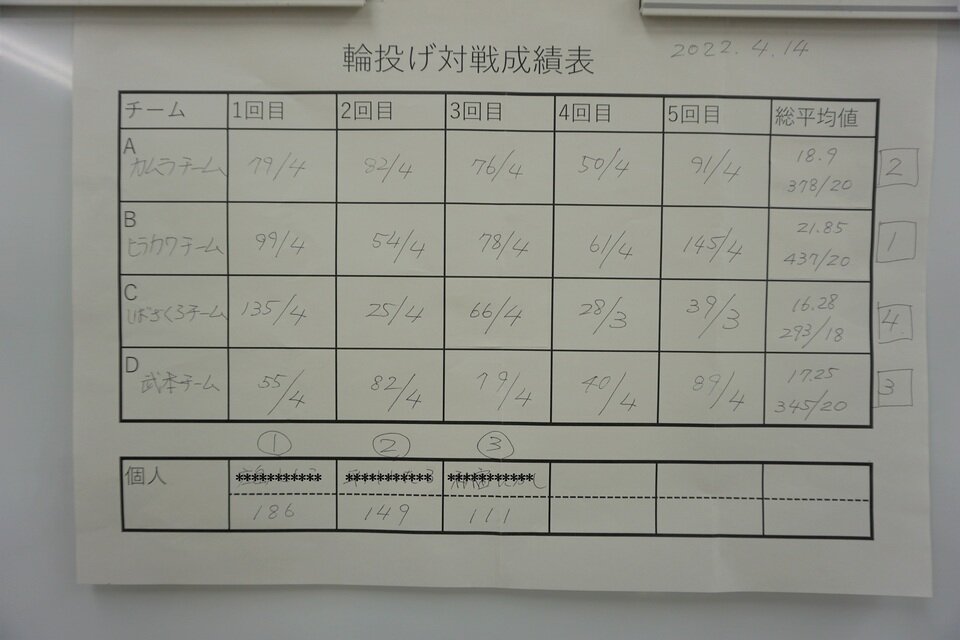 輪投げ対戦成績表
2022.4.14
チーム 1回目 2回目 3回目 4回目 5回目 総平均値
A カムラチーム 79/4 82/4 76/4 50/4 91/4 18.9 378/20 2
B ヒラカワチーム 99/4 54/4 78/4 61/4 145/4 21.85 437/20 1
C しばざくらチーム 135/4 25/4 66/4 28/3 39/3 16.28 293/18 4
D 武本チーム 55/4 82/4 79/4 40/4 89/4 17.25 345/20 3
① ② ③
個人
186 149 111